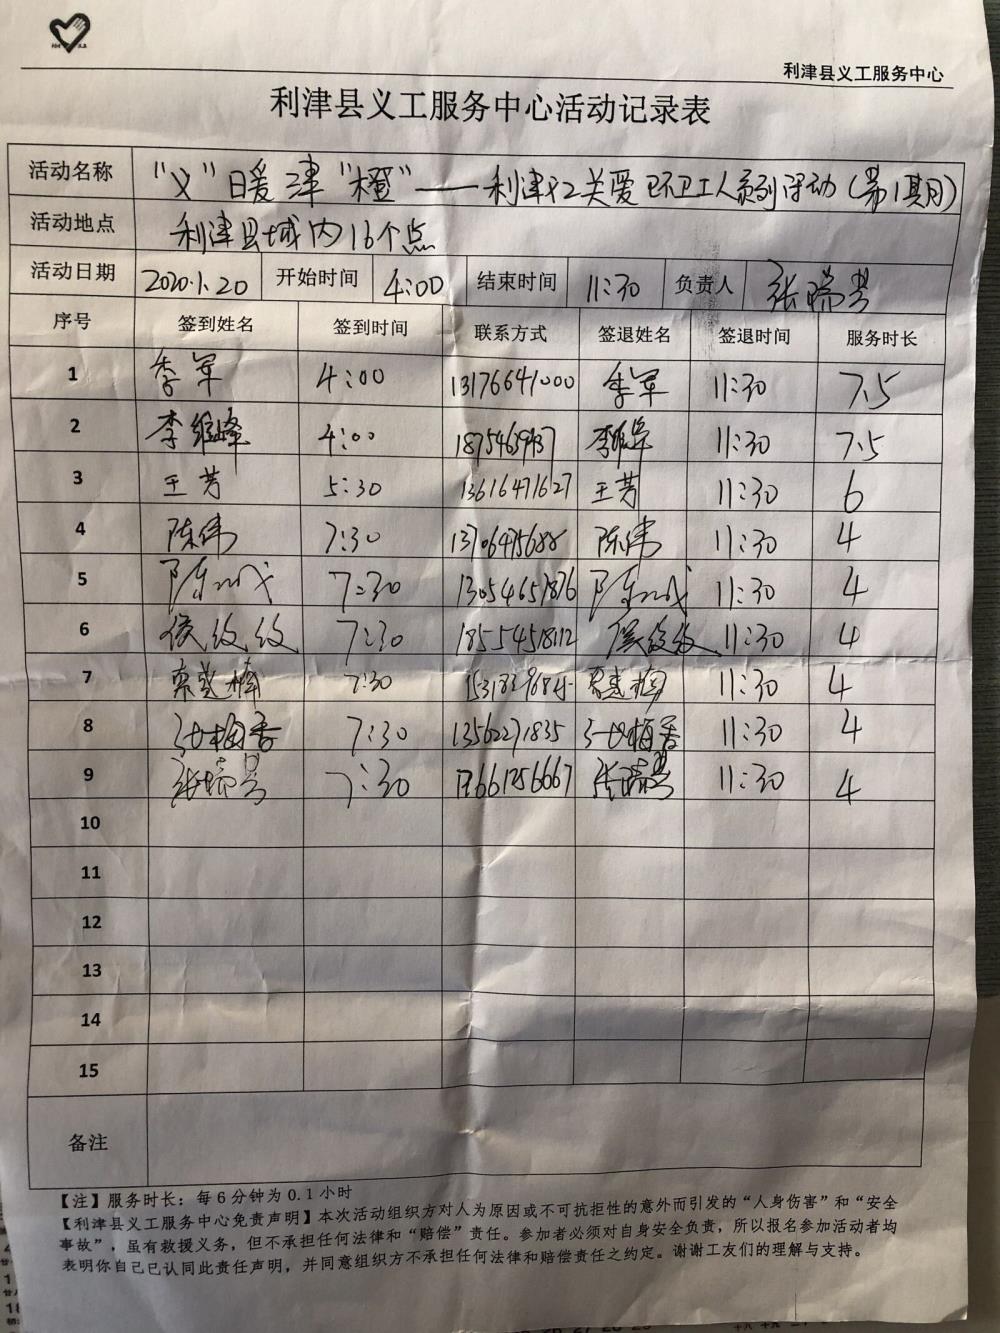 利津县义工服务中心
利津县义工服务中心活动记录表
活动名称 "义"暖津"橙"——利津义工关爱环卫工人系列活动(第1期)
活动地点 利津县城内16个点
活动日期 2020.1.20 开始时间 4:00 结束时间 11:30 负责人 张瑞芳
序号 签到姓名 签到时间 联系方式 签退姓名 签退时间 服务时长
1 季军 4:00 13176641000 季军 11:30 7.5
2 李继峰 4:00 11:30 7.5
3 王芳 5:30 13616471627 王芳 11:30 6
4 陈伟 7:30 陈伟 11:30 4
5 7:30 13054657876 11:30 4
6 侯纹纹 7:30 18555458112 侯纹纹 11:30 4
7 7:30 11:30 4
8 7:30 13562271835 11:30 4
9 张瑞芳 7:30 17661256667 张瑞芳 11:30 4
10
11
12
13
14
15
备注
【注】服务时长:每6分钟为0.1小时
【利津县义工服务中心免责声明】本次活动组织方对人为原因或不可抗拒性的意外而引发的“人身伤害”和“安全
事故”,虽有救援义务,但不承担任何法律和“赔偿”责任。参加者必须对自身安全负责,所以报名参加活动者均
表明你自己已认同此责任声明,并同意组织方不承担任何法律和赔偿责任之约定。谢谢工友们的理解与支持。